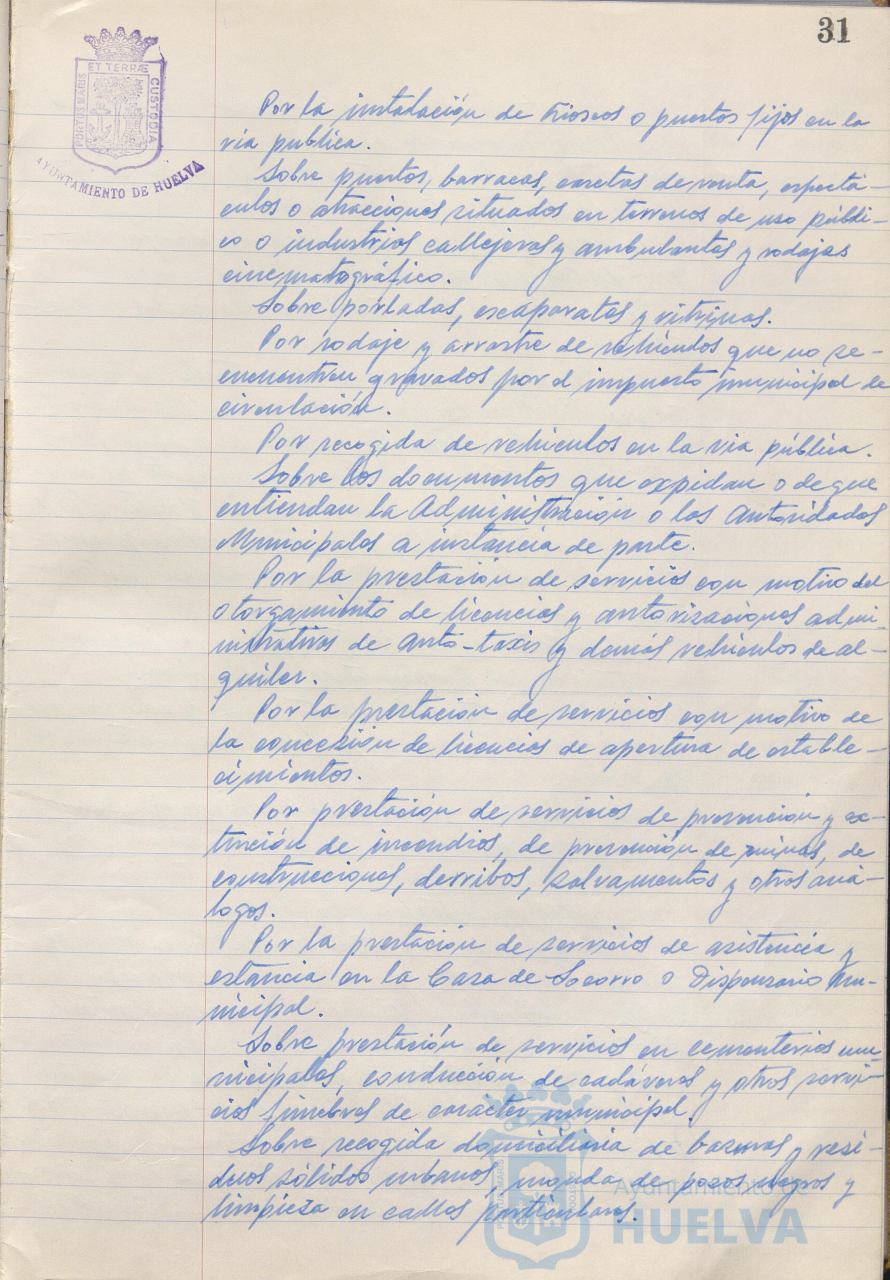 31
PORTUS MARIS
ET TERRÆ
CUSTODIA
AYUNTAMIENTO DE HUELVA
Por la instalación de Kioscos o puestos fijos en la
via publica.
Sobre puestos, barracas, casetas de venta, espectá-
culos o atracciones situados en terrenos de uso públi-
co o industrias callejeras y ambulantes y rodajes
cinematográfico.
Sobre portadas, escaparates y vitrinas.
Por rodaje y arrastre de vehículos que no se-
encuentren gravados por el impuesto municipal de
circulación.
Por recogida de vehiculos en la via pública.
Sobre los documentos que expidan o de que
entiendan la Administración o las Autoridades
Municipales a instancia de parte.
Por la prestación de servicios con motivo del
otorgamiento de licencias y autorizaciones admi-
nistrativas de auto-taxis y demás vehículos de al-
quiler.
Por la prestación de servicios con motivo de
la concesión de licencias de apertura de estable-
cimientos.
Por prestación de servicios de prevención y ex-
tinción de incendios, de prevención de ruinas, de
construcciones, derribos, salvamentos y otros aná-
logos.
Por la prestación de servicios de asistencia y
estancia en la Casa de Socorro o Dispensario Mu-
nicipal.
Sobre prestación de servicios en cementerios mu-
nicipales, conducción de cadáveres y otros servi-
cios fúnebres de caracter municipal.
Sobre recogida domiciliaria de basuras y resi-
duos sólidos urbanos, monda de pozos negros y
limpieza en calles particulares.
Ayuntamiento de
HUELVA